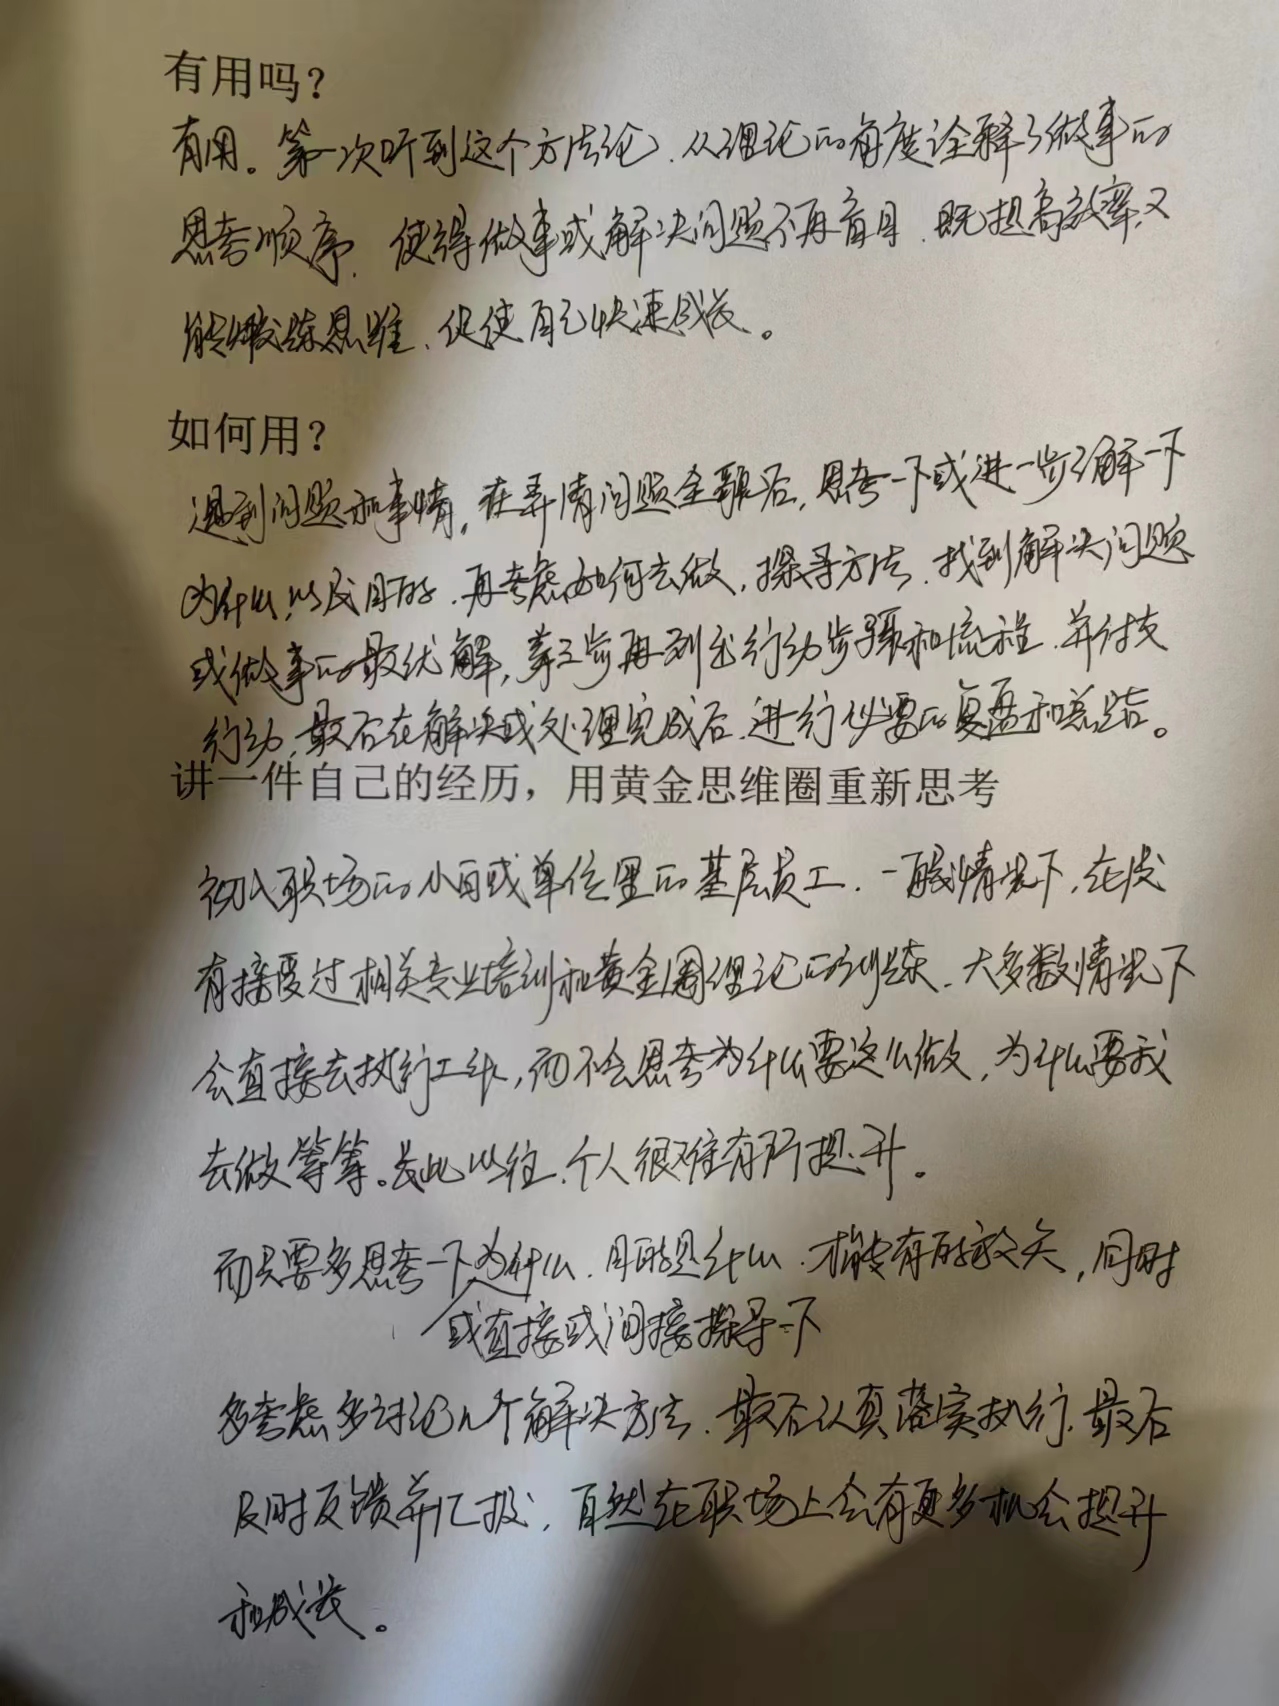 有用吗？
有用。第一次听到这个方法论，从理论的角度诠释了做事的
思考顺序，使得做事或解决问题不再盲目，既提高效率又
能锻炼思维，促使自己快速成长。
如何用？
遇到问题和事情，在弄清问题全貌后，思考一下或进一步了解一下
为什么，以及目的，再考虑如何去做，探寻方法，找到解决问题
或做事的最优解，第三步再列出行动步骤和流程，并付支
行动，最后在解决或处理完成后，进行必要的复盘和总结。
讲一件自己的经历，用黄金思维圈重新思考
初入职场的小白或单位里的基层员工，一般情况下，在没
有接受过相关专业培训和黄金圈理论的训练，大多数情况下
会直接去执行工作，而不会思考为什么要这么做，为什么要我
去做等等。长此以往，个人很难有所提升。
而只要多思考一下为什么，目的是什么，才能有的放矢，同时
或直接或间接探寻一下
多考虑多讨论几个解决方法，最后认真落实执行，最后
及时反馈并汇报，自然在职场上会有更多机会提升
和成长。